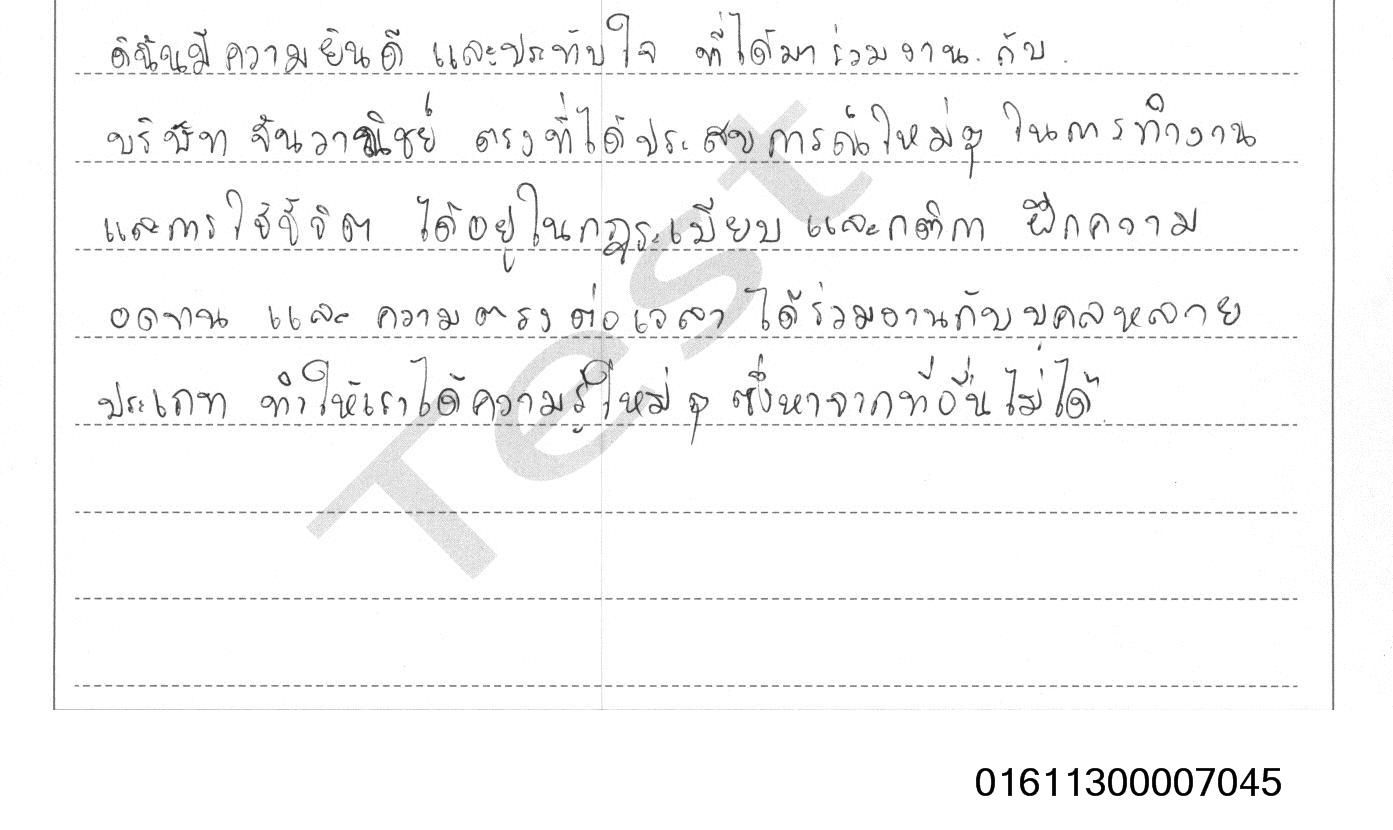 ดิฉันมีความยินดี และประทับใจ ที่ได้มาร่วมงาน กับ
บริษัท จันวาณิชย์ ตรงที่ได้ประสบการณ์ใหม่ๆ ในการทำงาน
และการใช้ชีวิต ได้อยู่ในกฎระเบียบและกติกา ฝึกความ
อดทน และ ความตรงต่อเวลา ได้ร่วมงานกับบุคคลหลาย
ประเภท ทำให้เราได้ความรู้ใหม่ๆ ซึ่งหาจากที่อื่นไม่ได้
Test
01611300007045